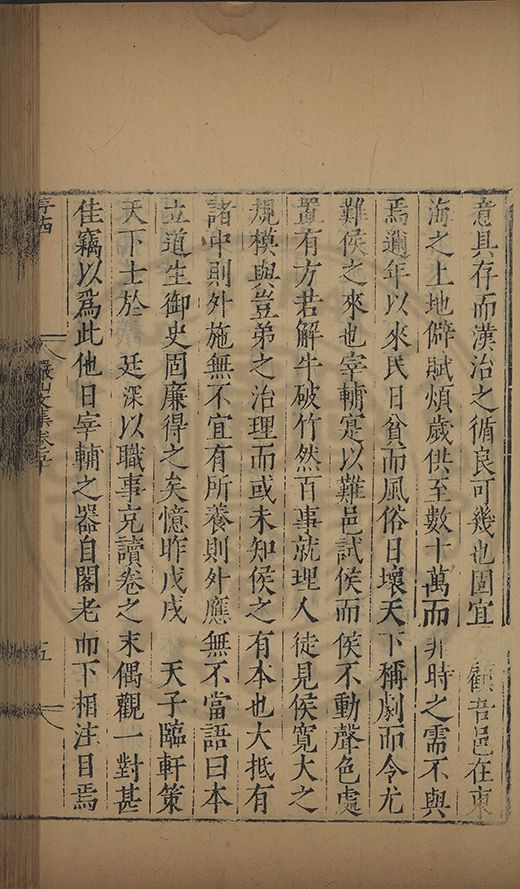 意具存而漢治之循良可幾也固宜　顧吾邑在東
海之上地僻賦煩歲供至數十萬而非時之需不與
焉邇年以來民日貧而風俗日壞天下稱劇而令尤
難侯之來也宰輔寔以難邑試侯而侯不動聲色處
置有方若解牛破竹然百事就理人徒見侯寬大之
規模與豈弟之治理而或未知侯之有本也大抵有
諸中則外施無不宜有所養則外應無不當語曰本
立道生御史固廉得之矣憶昨戊戌　天子臨軒策
天下士於　廷深以職事充讀卷之末偶觀一對甚
佳竊以為此他日宰輔之器自閣老而下相注目焉
五